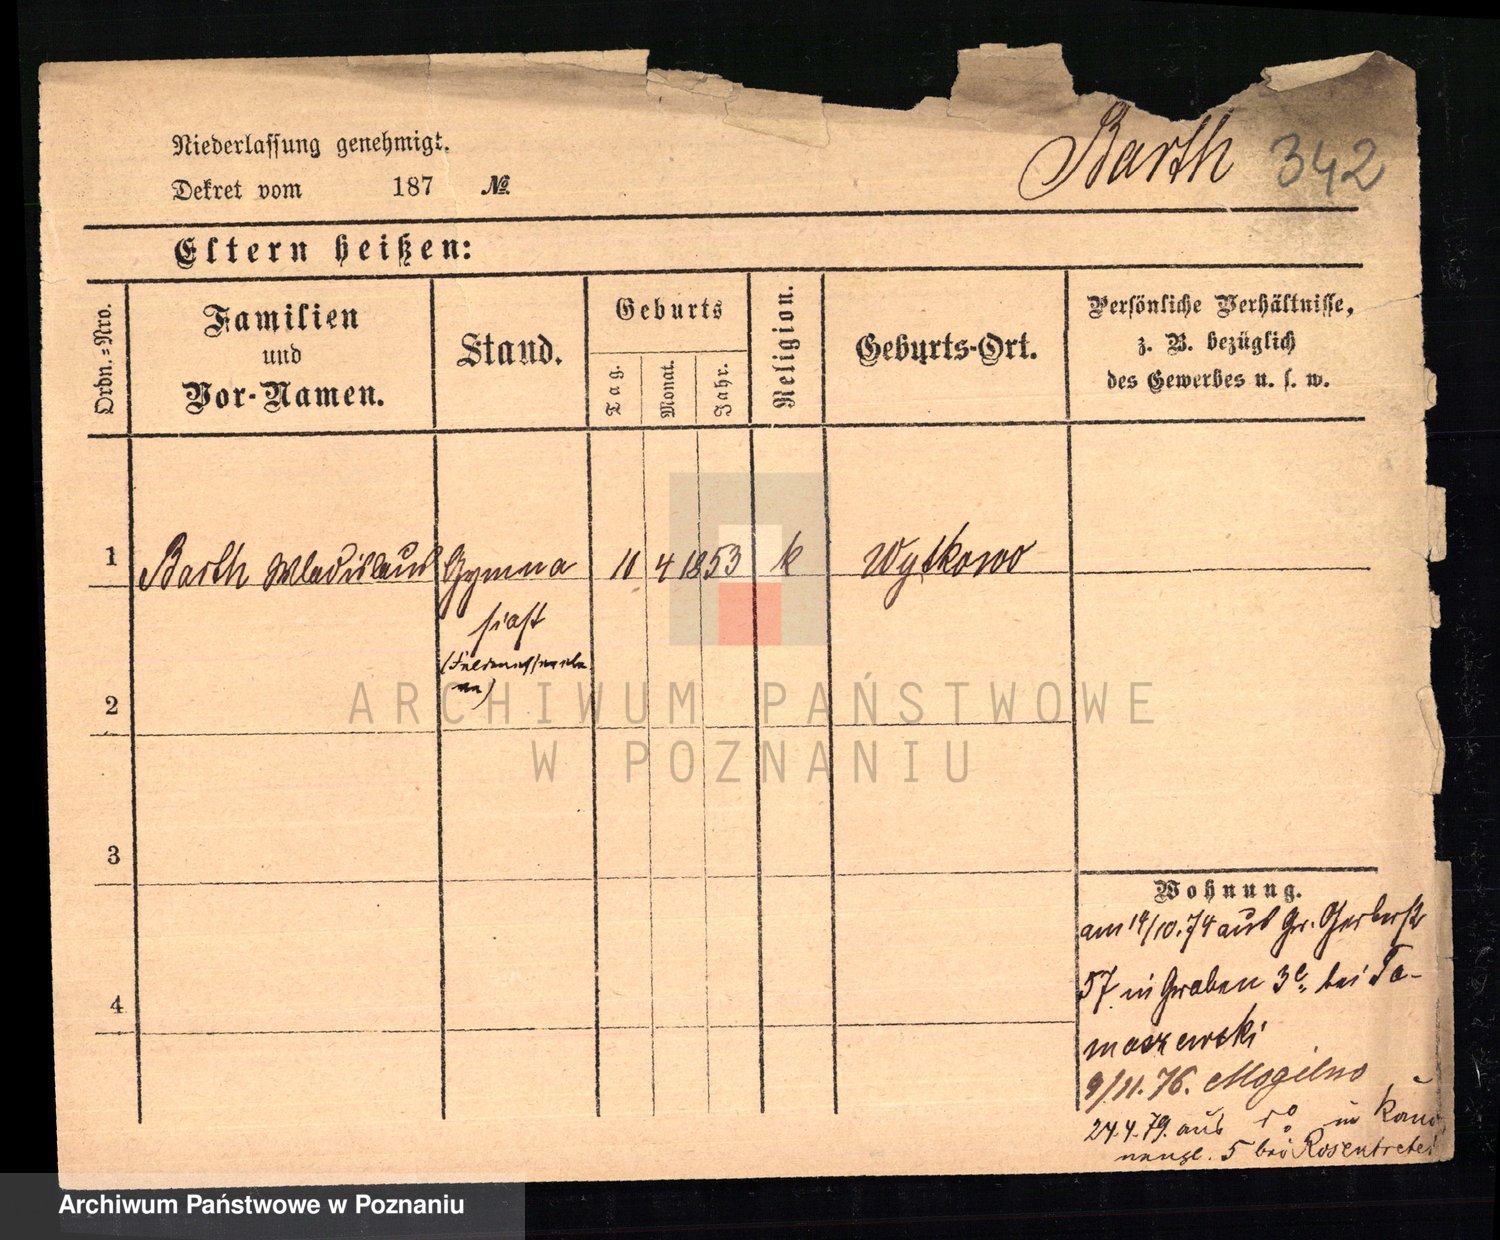 Niederlassung genehmigt.
Dekret vom 187 No.
Barth 342
Eltern heißen:
Ordn.-Nro.
Familien
und
Vor-Namen.
Stand.
Geburts
Tag.
Monat.
Jahr.
Religion.
Geburts-Ort.
Persönliche Verhältnisse,
z. B. bezüglich
des Gewerbes u. s. w.
1 Barth Wladislaus Gymna 11 4 1853 k Wytkowo
siast
2
3
4
Wohnung.
am 14/10.74 aus Gr. Gerberst
57 in Graben 3 bei To-
maszewski
9/11.76. Mogilno
24.4.79. aus in
5 bei Rosentreter
ARCHIWUM PAŃSTWOWE
W POZNANIU
Archiwum Państwowe w Poznaniu